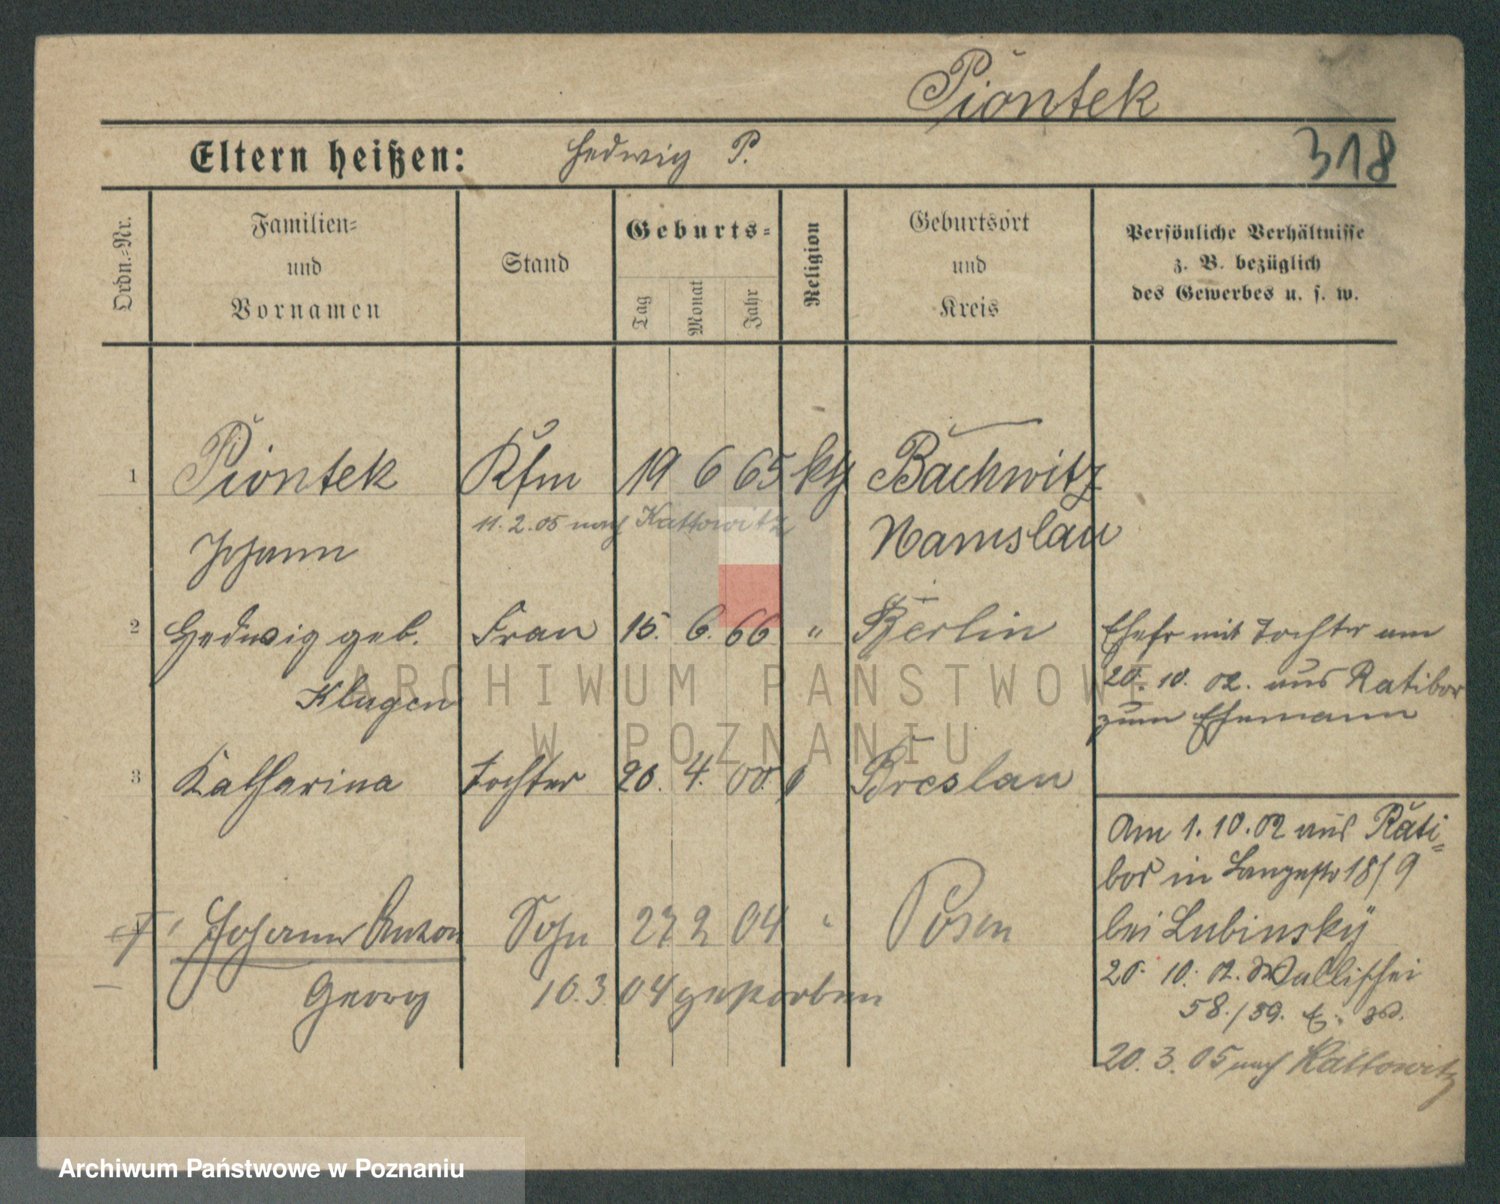 Piontek
Eltern heißen: Hedwig P. 318
Ordn.-Nr.
Familien-
und
Vornamen
Stand
Geburts-
Tag
Monat
Jahr
Religion
Geburtsort
und
Kreis
Persönliche Verhältnisse
z. B. bezüglich
des Gewerbes u. s. w.
1 Piontek Kfm 19 6 65 kth Bachwitz
11.2.05 nach Kattowitz
Johann Namslau
2 Hedwig geb. Frau 15. 6. 66 " Berlin
Klugen
Ehefr mit Tochter am
20. 10. 02. aus Ratibor
zum Ehemann
3 Katharina Tochter 20. 4. 00. Breslau
Am 1.10.02 aus Rati-
bor in Langestr 18/9
bei Lubinsky
† Johann Anton Sohn 27 2 04 " Posen
Georg 10.3 04 gestorben
20. 10. 02. Wallischei
58./59.
20. 3. 05 nach Kattowitz
ARCHIWUM PAŃSTWOWE
W POZNANIU
Archiwum Państwowe w Poznaniu